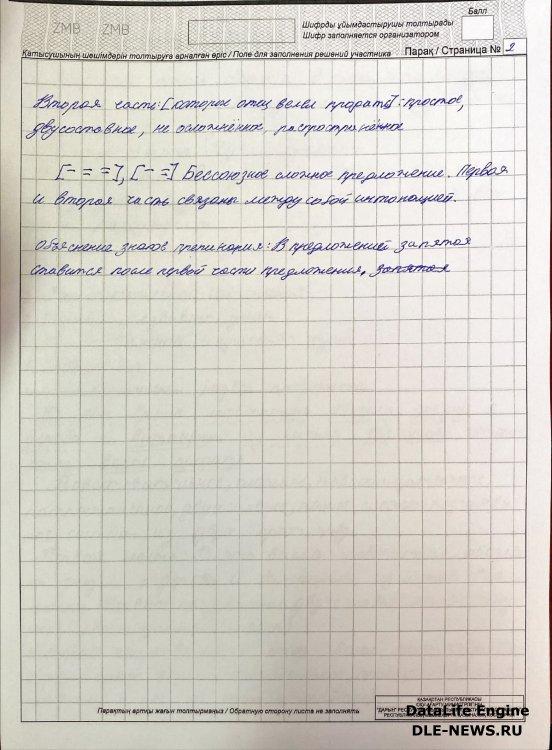 ZMB ZMB
Шифрды ұйымдастырушы толтырады
Шифр заполняется организатором
Балл
Қатысушының шешімдерін толтыруға арналған өріс / Поле для заполнения решений участника
Парақ / Страница № 2
Вторая часть: [которое отец велел продать]: простое,
двусоставное, не осложнённое, распространённое
[- = =], [- =] Бессоюзное сложное предложение. Первая
и вторая часть связаны между собой интонацией.
Объяснение знаков препинания: В предложении запятая
ставится после первой части предложения. запятая
Парақтың артқы жағын толтырмаңыз / Обратную сторону листа не заполнять
ҚАЗАҚСТАН РЕСПУБЛИКАСЫ
DataLife Engine
DLE-NEWS.RU